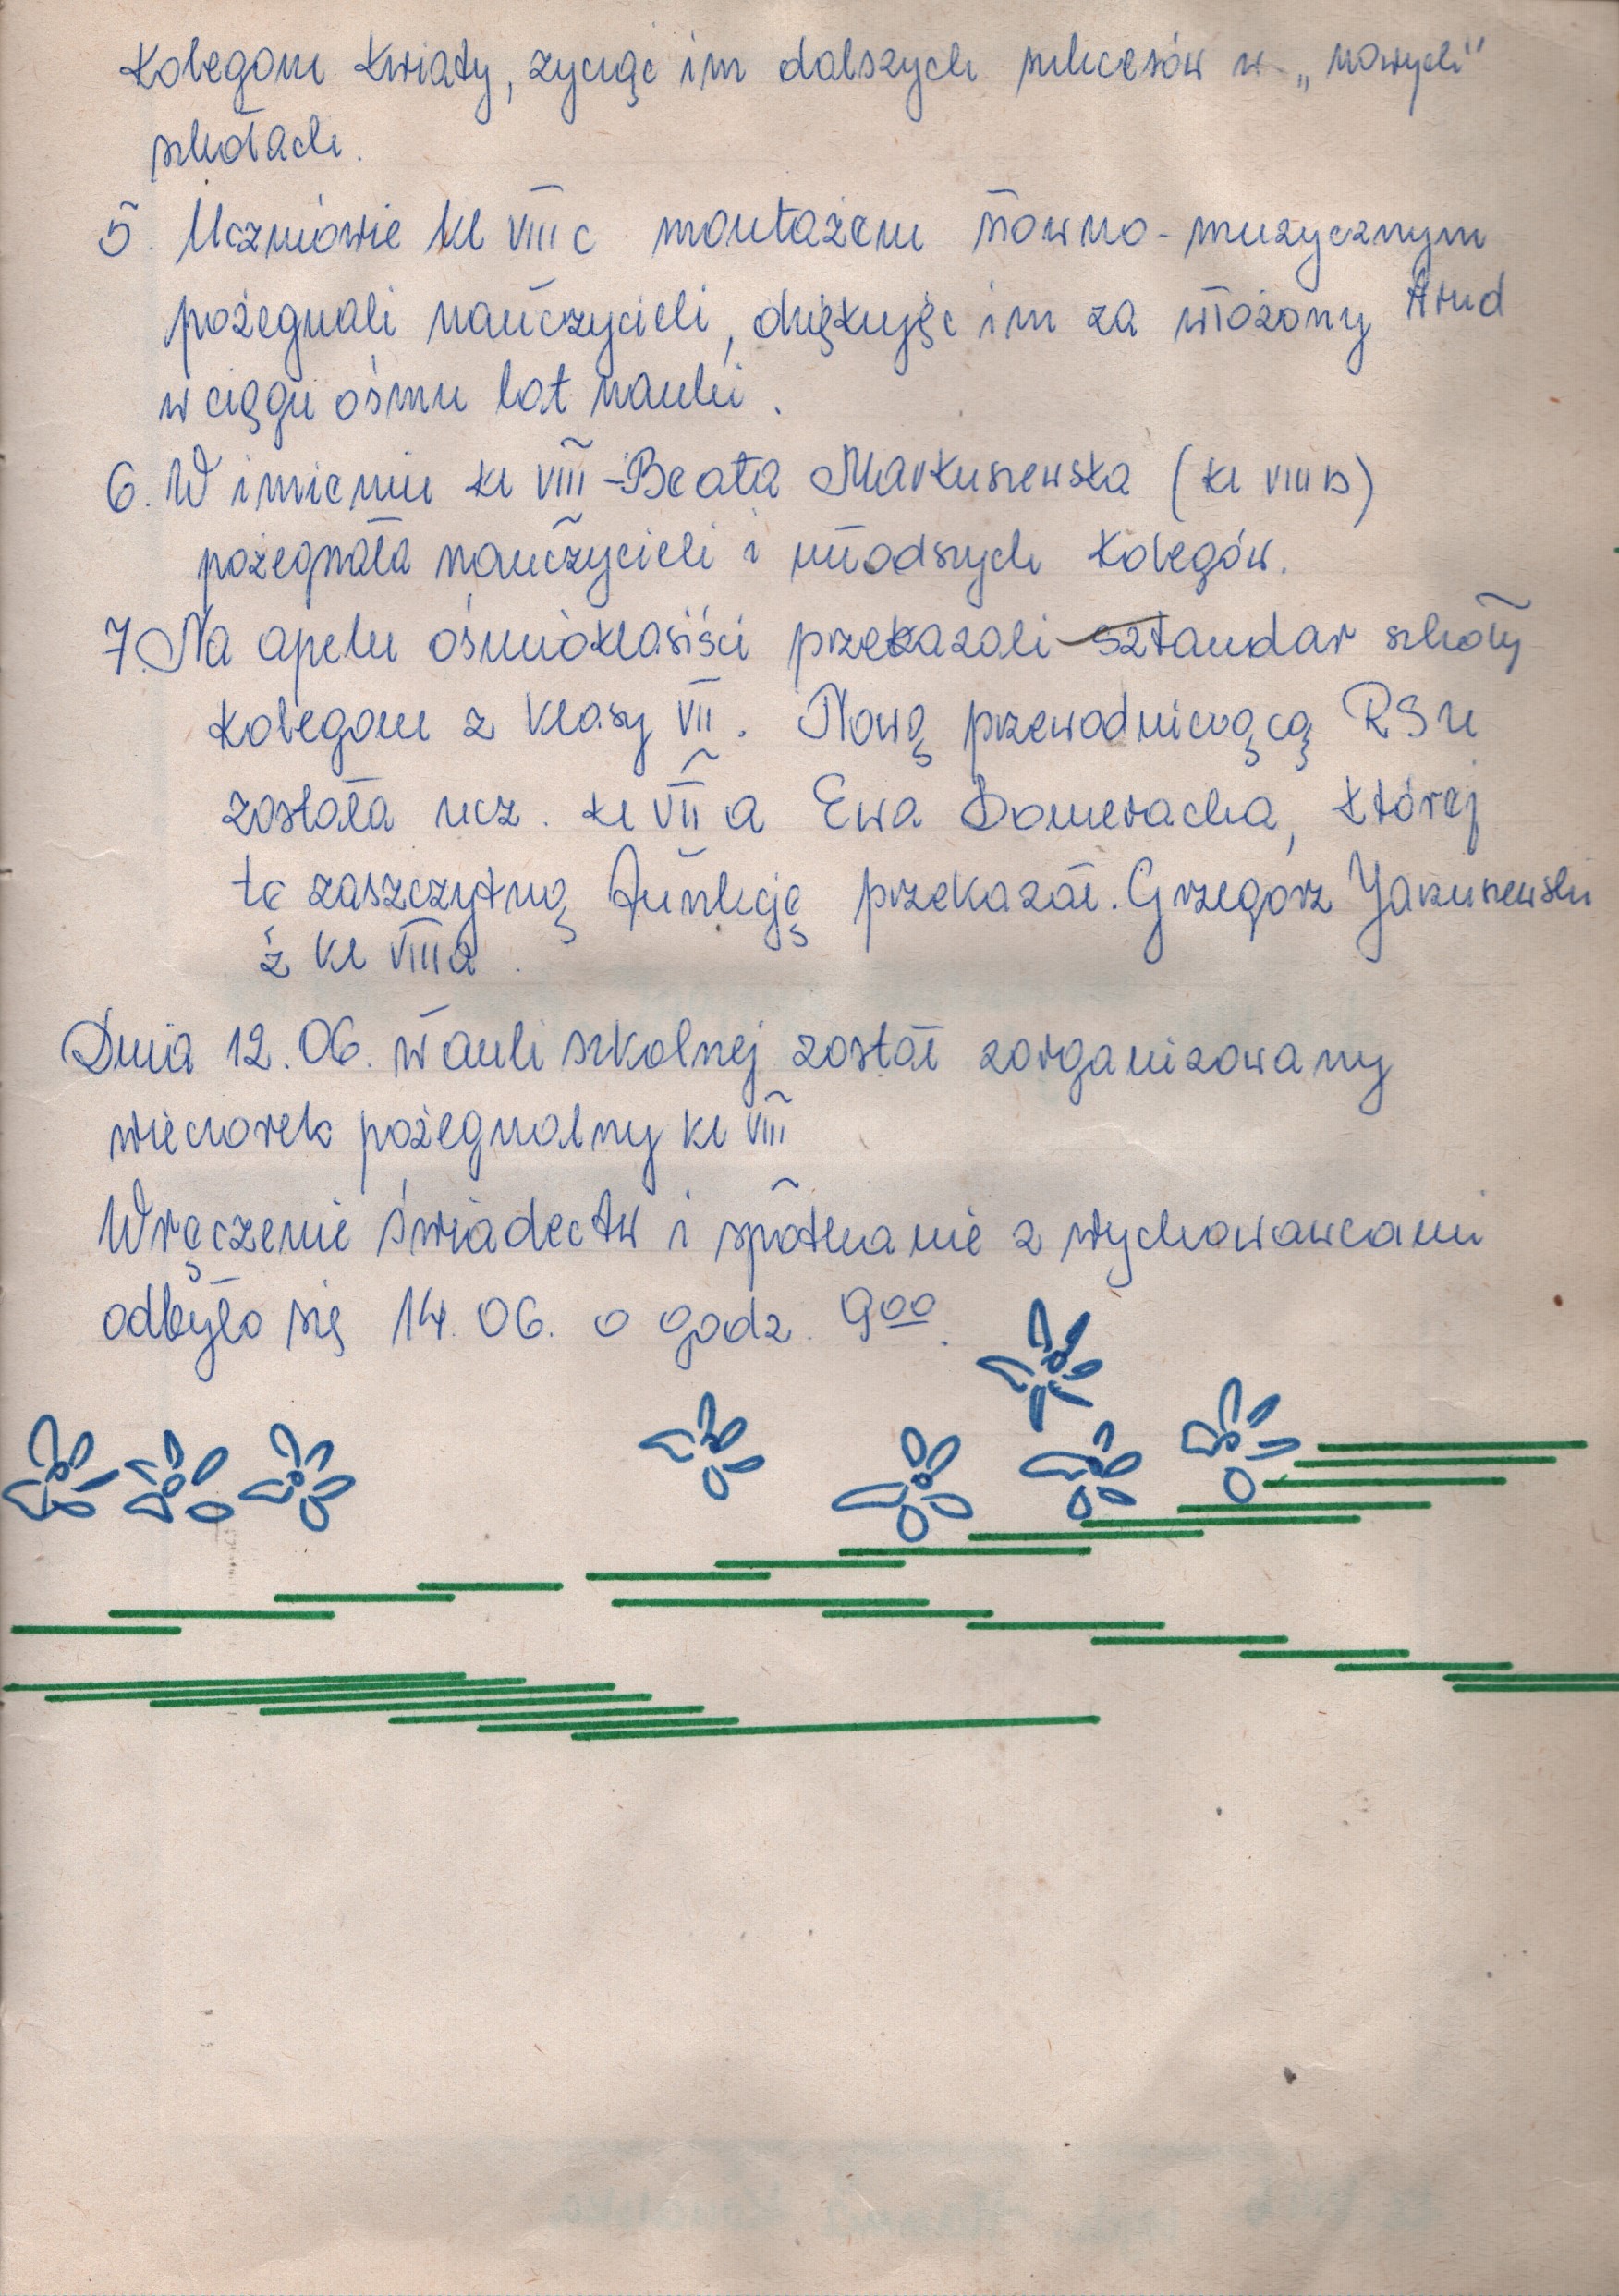 kolegom kwiaty, życząc im dalszych sukcesów w „nowych"
szkołach.
5. Uczniowie kl VIII c montażem słowno-muzycznym
pożegnali nauczycieli, dziękując im za włożony trud
w ciągu ośmiu lat nauki.
6. W imieniu kl VIII - Beata Markuszewska (kl VIII B)
pożegnała nauczycieli i młodszych kolegów.
7. Na apelu ósmioklasiści przekazali sztandar szkoły
kolegom z klasy VII. Nową przewodniczącą RSU
została ucz. kl VII a Ewa Domeracka, której
tę zaszczytną funkcję przekazał Grzegorz
z kl VIII a.
Dnia 12.06. w auli szkolnej został zorganizowany
wieczorek pożegnalny kl VIII
Wręczenie świadectw i spotkanie z wychowawcami
odbyło się 14.06. o godz. 9⁰⁰.